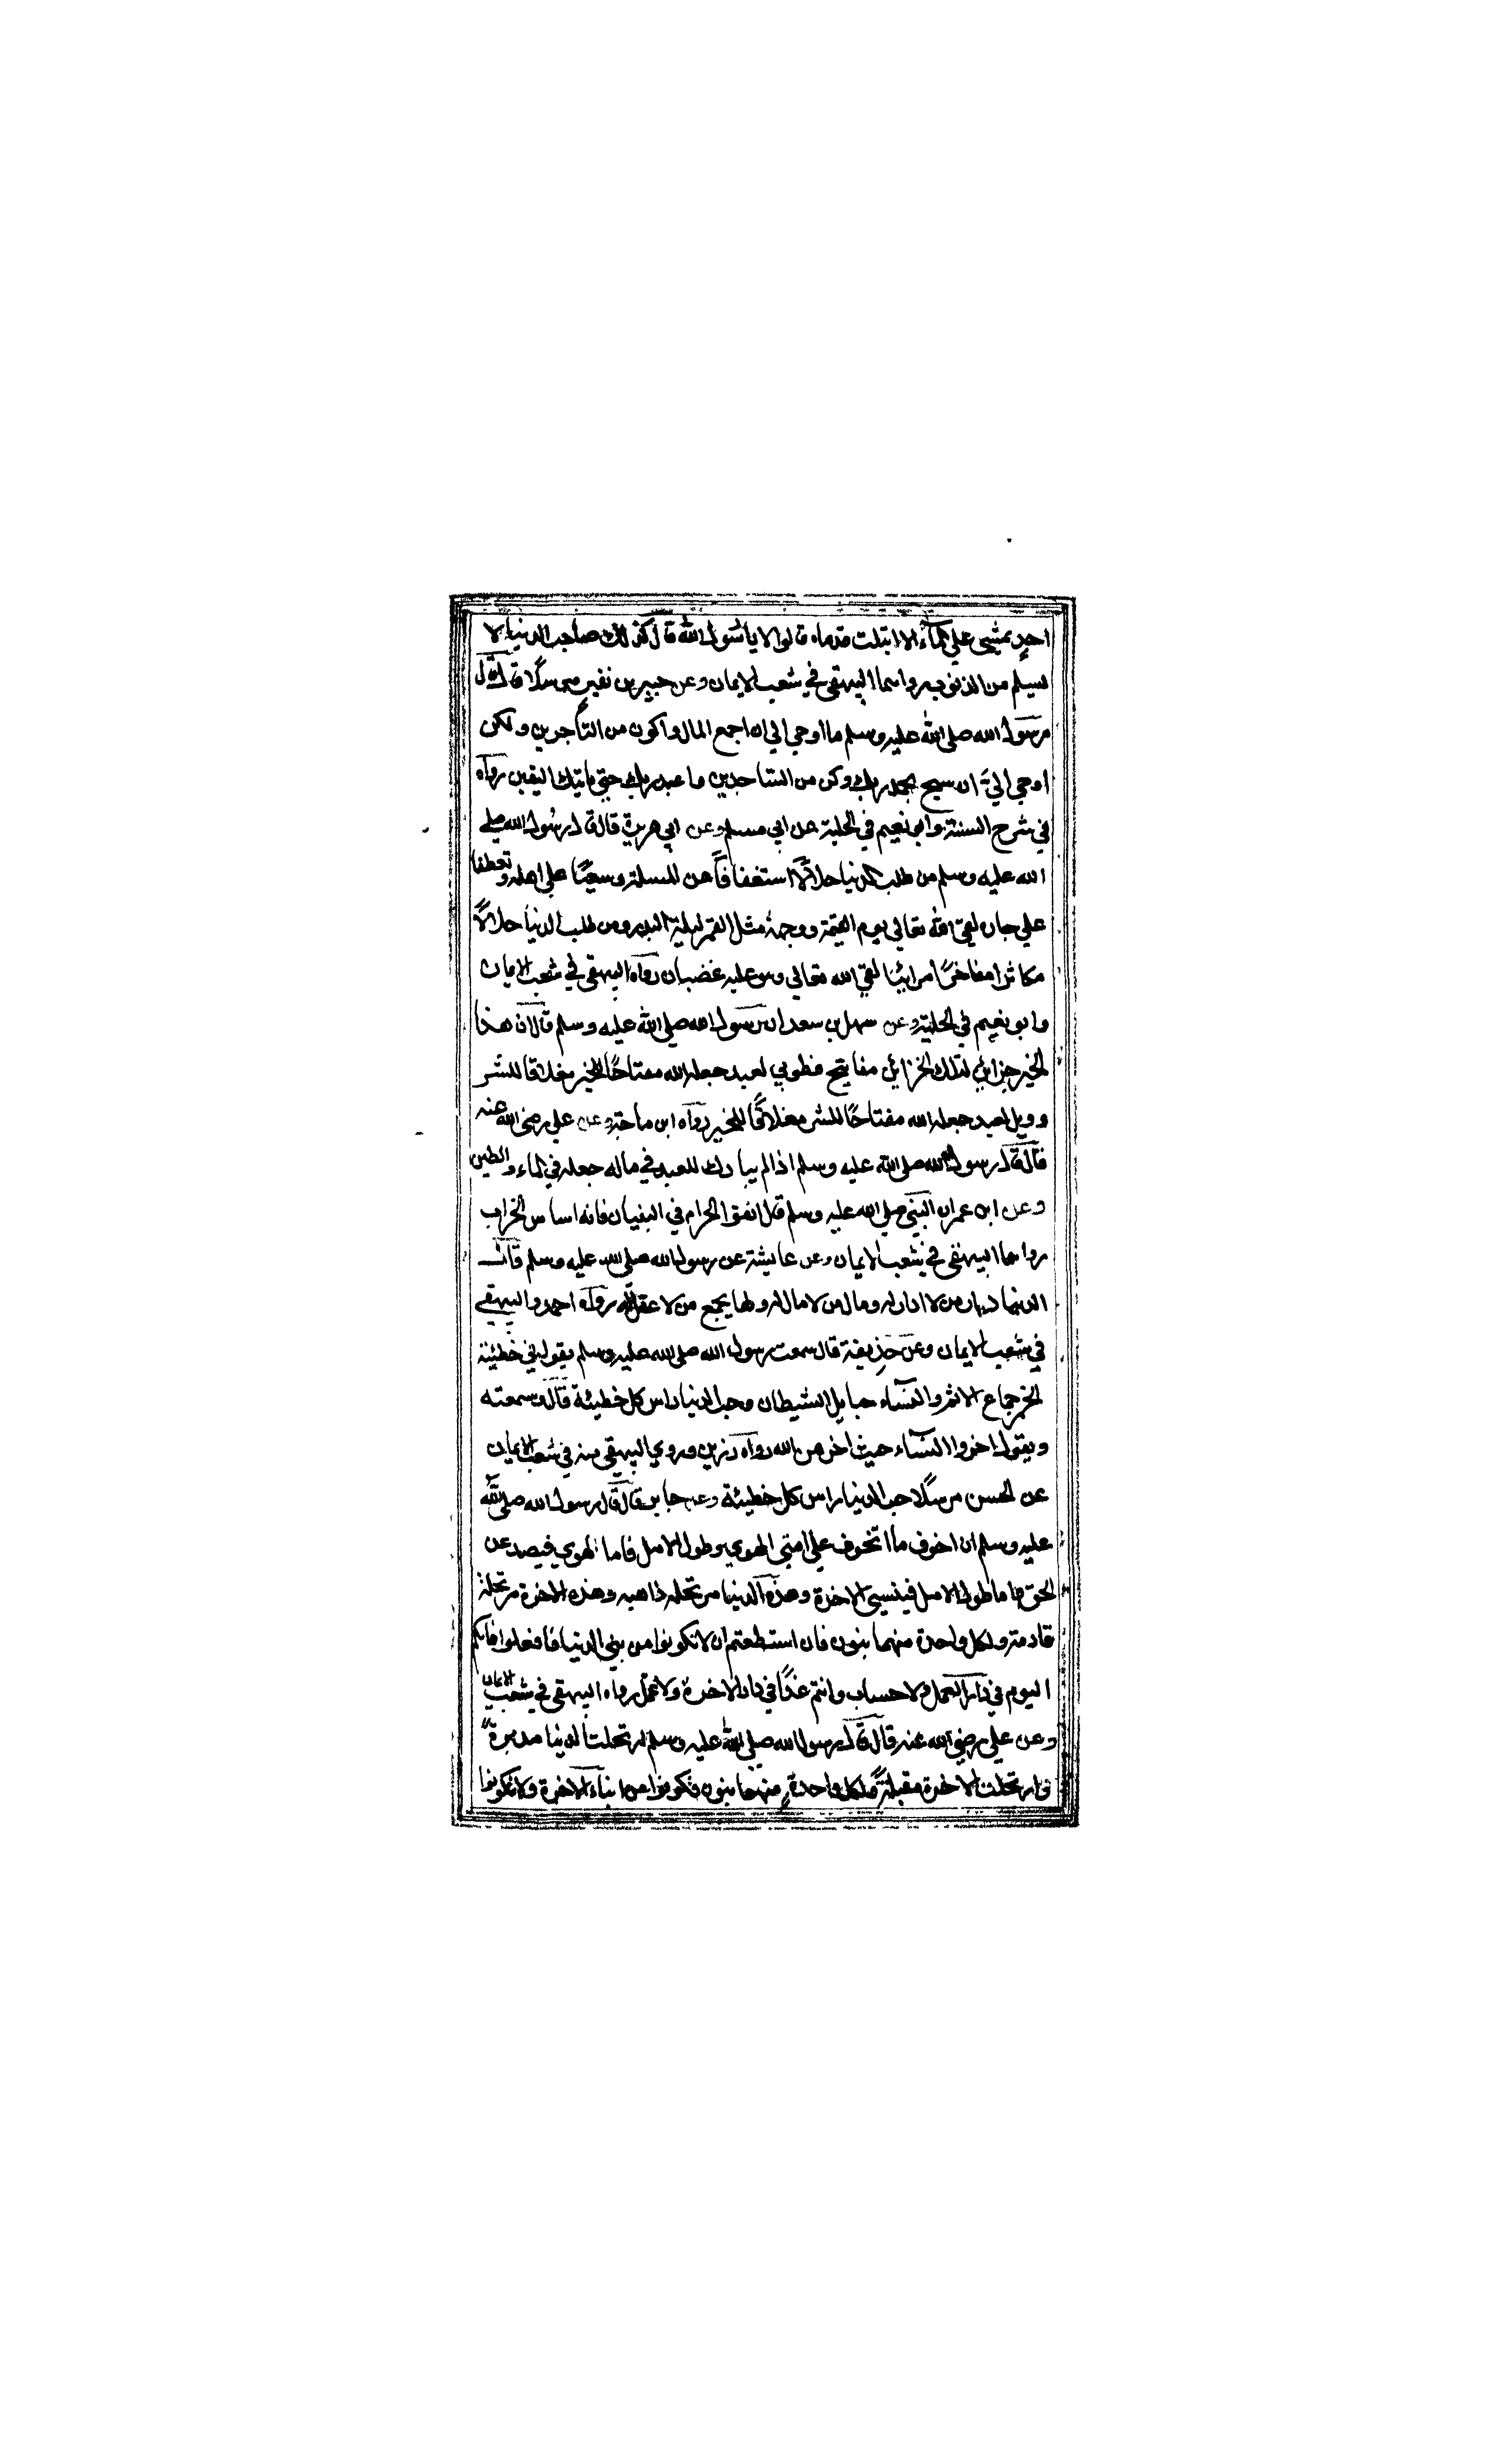 احد يمشي علي الماء الا ابتلت قدماه قالوا لا يا رسول الله قال كذلك صاحب الدنيا لا
يسلم من الذنوب رواهما البيهقي في شعب الايمان وعن جبير بن نفير مرسلا قال قال
رسول الله صلى الله عليه وسلم ما اوحي الي ان اجمع المال واكون من التاجرين ولكن
اوحي الي ان سبح بحمد ربك وكن من الساجدين واعبد ربك حتي ياتيك اليقين رواه
في شرح السنة وابو نعيم في الحلية عن ابي مسلم وعن ابي هريرة قال قال رسول الله صلي
الله عليه وسلم من طلب الدنيا حلالا استعفافا عن المسلة وسعيا علي اهله وتعطفا
علي جاره لقي الله تعالي يوم القيمة ووجهه مثل القمر ليلة البدر ومن طلب الدنيا حلالا
مكاثرا مفاخرا مرائيا لقي الله تعالي وهو عليه غضبان رواه البيهقي في شعب الايمان
وابو نعيم في الحلية وعن سهل بن سعد ان رسول الله صلى الله عليه وسلم قال ان هذا
الخير خزائن لتلك الخزائن مفاتيح فطوبي لعبد جعله الله مفتاحا للخير مغلاقا للشر
وويل لعبد جعله الله مفتاحا للشر مغلاقا للخير رواه ابن ماجة وعن علي رضي الله عنه
قال قال رسول الله صلى الله عليه وسلم اذا لم يبارك للعبد في ماله جعله في الماء والطين
وعن ابن عمر ان النبي صلي الله عليه وسلم قال اتقوا الحرام في البنيان فانه اساس الخراب
رواهما البيهقي في شعب الايمان وعن عايشة عن رسول الله صلى الله عليه وسلم قال
الدنيا دار من لا دار له ومال من لا مال له ولها يجمع من لا عقل له رواه احمد والبيهقي
في شعب الايمان وعن حذيفة قال سمعت رسول الله صلى الله عليه وسلم يقول في خطبته
الخمر جماع الاثم والنساء حبايل الشيطان وحب الدنيا راس كل خطيئة قال وسمعته
ويقول اخروا النساء حيث اخرهن الله رواه رزين وروي البيهقي منه في شعب الايمان
عن الحسن مرسلا حب الدنيا راس كل خطيئة وعن جابر قال قال رسول الله صلى الله
عليه وسلم ان اخوف ما اتخوف علي امتي الهوي وطول الامل فاما الهوي فيصد عن
الحق واما طول الامل فينسي الاخرة وهذه الدنيا مرتحلة ذاهبة وهذه الاخرة مرتحلة
قادمة ولكل واحدة منهما بنون فان استطعتم ان لا تكونوا من بني الدنيا فافعلوا فانكم
اليوم في دار العمل ولا حساب وانتم غدا في دار الاخرة ولا عمل رواه البيهقي في شعب الايمان
وعن علي رضي الله عنه قال قال رسول الله صلى الله عليه وسلم ارتحلت الدنيا مدبرة
وارتحلت الاخرة مقبلة ولكل واحدة منهما بنون فكونوا من ابناء الاخرة ولا تكونوا